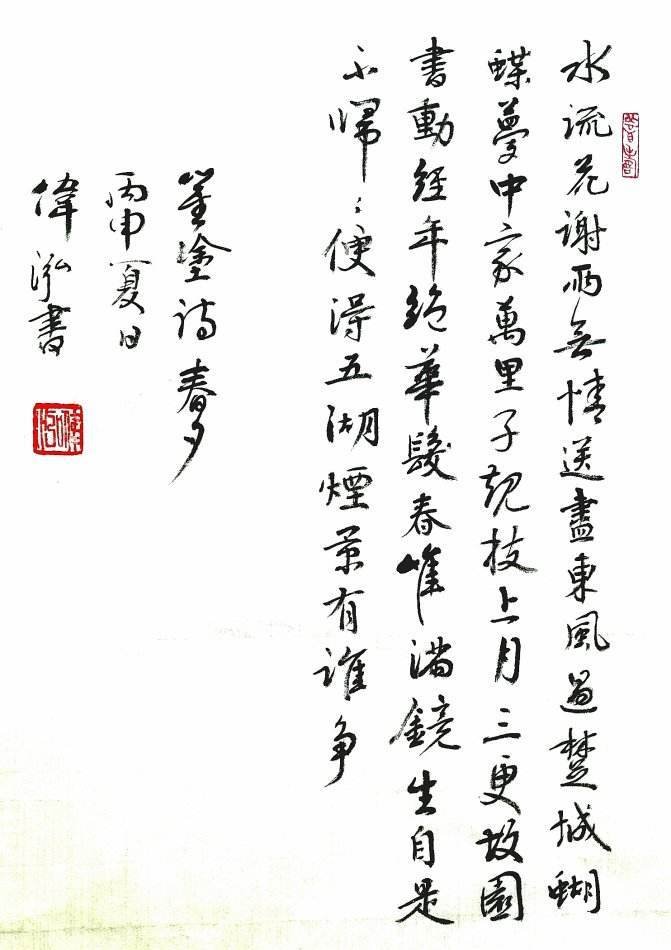 水流花謝兩無情送盡東風過楚城蝴
蝶夢中家萬里子規枝上月三更故園
書動經年絕華髮春唯滿鏡生自是
不歸〻便得五湖煙景有誰爭
崔塗詩春夕
丙申夏日
偉泓書